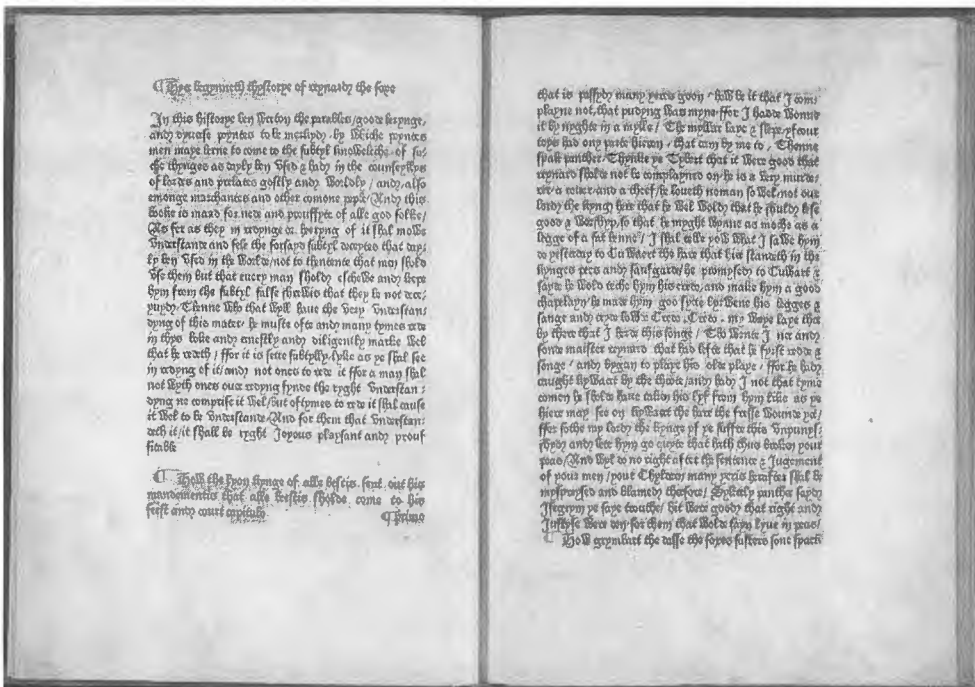 ¶ Hyer begynneth thystorye of reynard the foxe
In this historye ben wreton the parables / goode lerynge,
and dyuerse poyntes to be merkyd / by whiche poyntes
men maye lerne to come to the subtyl knoweleche of su-
che thynges as dayly ben vsed & had in the counseyllys
of lordes and prelates gostly and worldly / and also
emonge marchantes and other comone peple / And this
booke is maad for nede and prouffyte of alle god folke /
As fer as they in redynge or heeryng of it shal mowe
vnderstande and fele the forsayd subtyl deceytes that day-
ly ben vsed in the worlde / not to thentente that men shold
vse them but that euery man shold eschewe and kepe
hym from the subtyl false shrewis that they be not decey-
uyd / Thenne who that wyll haue the very vnderstan-
dyng of this mater / he muste ofte and many tymes rede
in thys boke and ernestly and diligently marke wel
that he redeth / ffor it is sette subtylly / lyke as ye shal see
in redyng of it / and not ones to rede it ffor a man shal
not wyth ones ouer redyng fynde the ryght vnderstan-
dyng ne comprise it wel / but oftymes to rede it shal cause
it wel to be vnderstande / And for them that vnderstan-
deth it / it shall be ryght Joyous playsant and prouf
fitable
¶ How the lyon kynge of alle bestis sent out his
mandementis that alle beestis sholde come to his
feest and court capitulo ¶ Primo
that is passyd many yeres goon / how be it that I com
playne not, that pudyng was myne / ffor I hadde wonne
it by nyghte in a mylle / The myllar laye & slepe / yf your
toys had ony parte hieron / that cam by me to / Thenne
spak panther / Thynke ye Tybert that it were good that
reynard sholde not be complayned on / he is a very murde-
rer / a rouer / and a theef / he loueth noman so wel / not our
lord the kyng here that he wel wold that he shuld lese
good & worshyp / so that he myght wynne as moche as a
legge of a fat henne / I shal telle yow what I sawe hym
do yesterday to Cuwaert the hare that hier standeth in the
kynges pees and saufgarde / he promysed to Cuwart &
sayde he wold teche hym his credo, and make hym a good
chapelayn / he made hym goo sytte bytwene his legges &
sange and cryde lowde Credo . Credo . my waye laye ther
by there that I herde this songe / Tho wente I ner and
fonde maister reynard that had lefte that he fyrst redde &
songe / and bygan to playe his olde playe / ffor he had
caught kywaert by the throte / and had I not that tyme
comen he sholde haue taken his lyf from hym like as ye
hiere may see on kywaert the hare the fresshe wounde yet /
ffor sothe my lord the kynge yf ye suffre this vnpuny-
shyd and lete hym go quyte that hath thus broken your
peas / And wyl do no right after the sentence & Jugement
of your men / your Chyldren many yeris herafter shal be
myspreysed and blamed therfore / Sykerly panther sayd
Isegrym ye saye trouthe / hit were good that right and
Justyse were don for them that wolde fayn lyue in peas /
¶ How grymbart the dasse the foxes susters sone spack